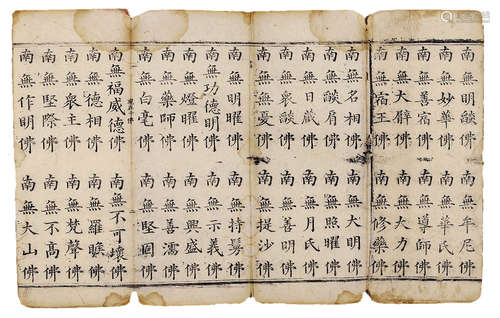 南無明燄佛 南無牟尼佛
南無妙華佛 南無華氏佛
南無善宿佛 南無導師佛
南無大臂佛 南無大力佛
南無宿王佛 南無修藥佛
南無名相佛 南無大明佛
南無燄肩佛 南無照曜佛
南無日藏佛 南無月氏佛
南無衆燄佛 南無善明佛
南無無憂佛 南無提沙佛
南無明曜佛 南無持鬘佛
南無功德明佛 南無示義佛
南無燈曜佛 南無興盛佛
南無藥師佛 南無善濡佛
南無白毫佛 南無堅固佛
南無福威德佛 南無不可壞佛
南無德相佛 南無羅睺佛
南無衆主佛 南無梵聲佛
南無堅際佛 南無不高佛
南無作明佛 南無大山佛